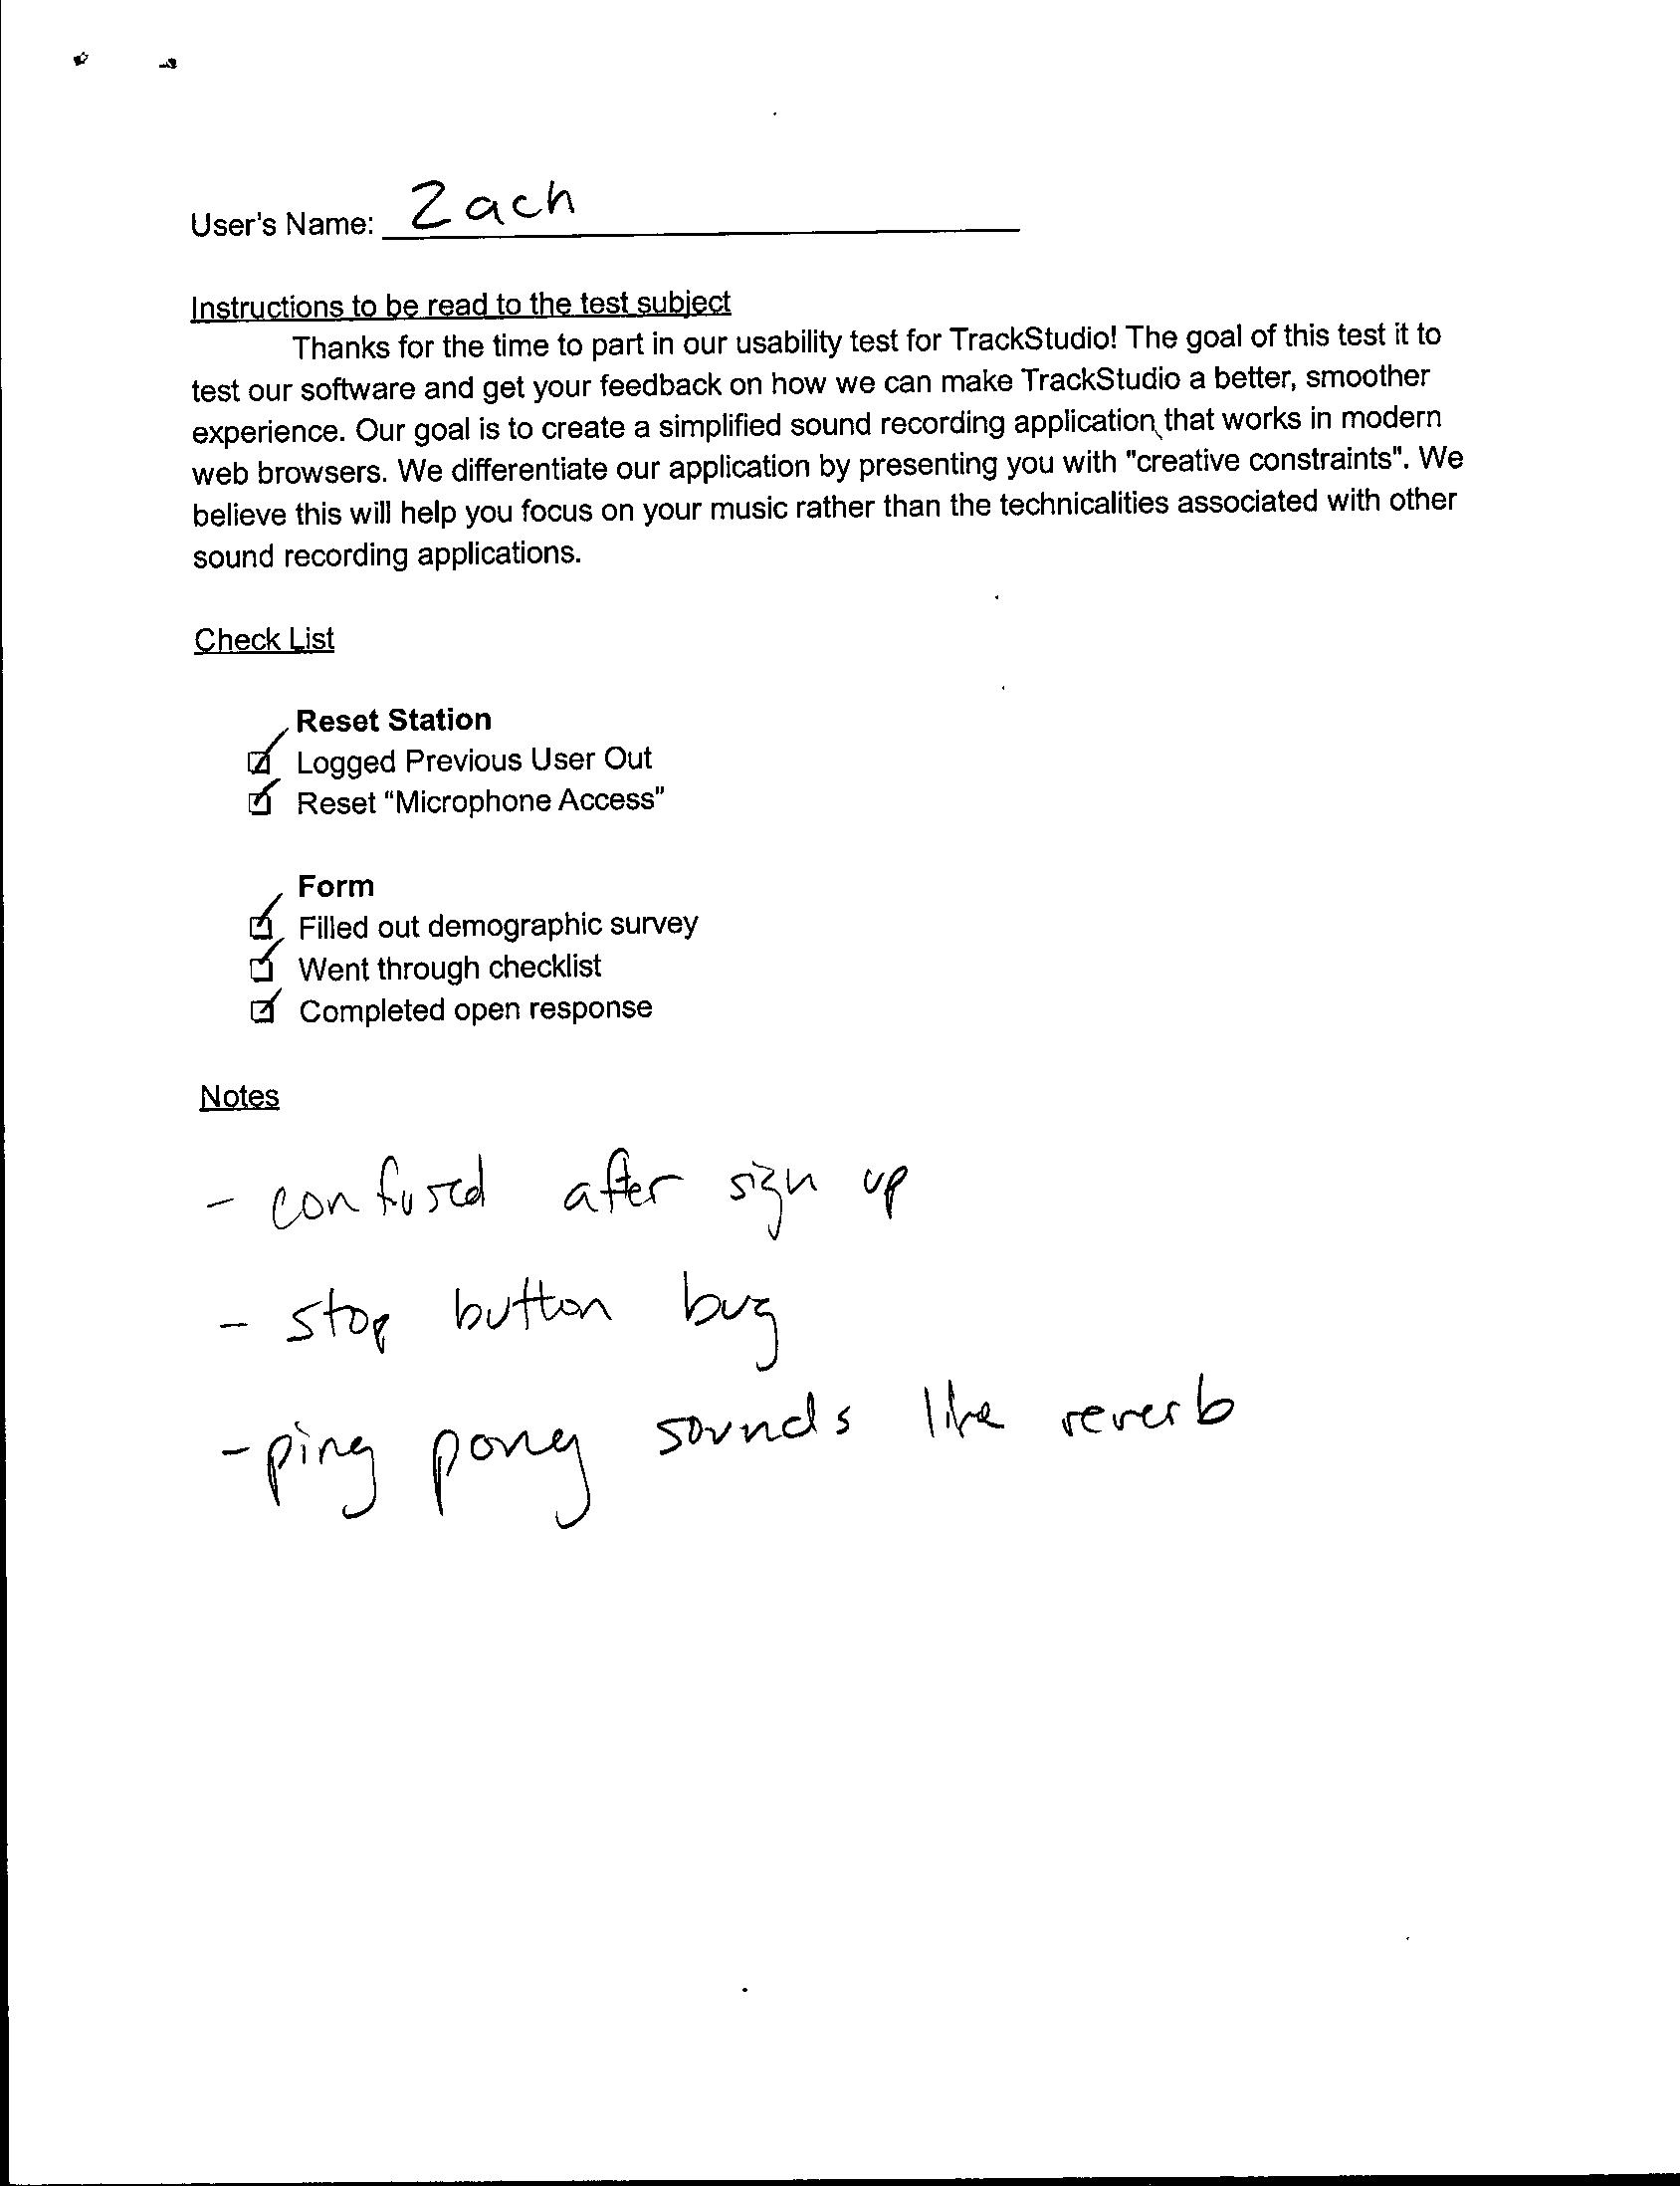 User's Name: Zach
Instructions to be read to the test subject
Thanks for the time to part in our usability test for TrackStudio! The goal of this test it to
test our software and get your feedback on how we can make TrackStudio a better, smoother
experience. Our goal is to create a simplified sound recording application that works in modern
web browsers. We differentiate our application by presenting you with "creative constraints". We
believe this will help you focus on your music rather than the technicalities associated with other
sound recording applications.
Check List
Reset Station
Logged Previous User Out
Reset “Microphone Access”
Form
Filled out demographic survey
Went through checklist
Completed open response
Notes
- confused after sign up
- stop button bug
- ping pong sounds like reverb